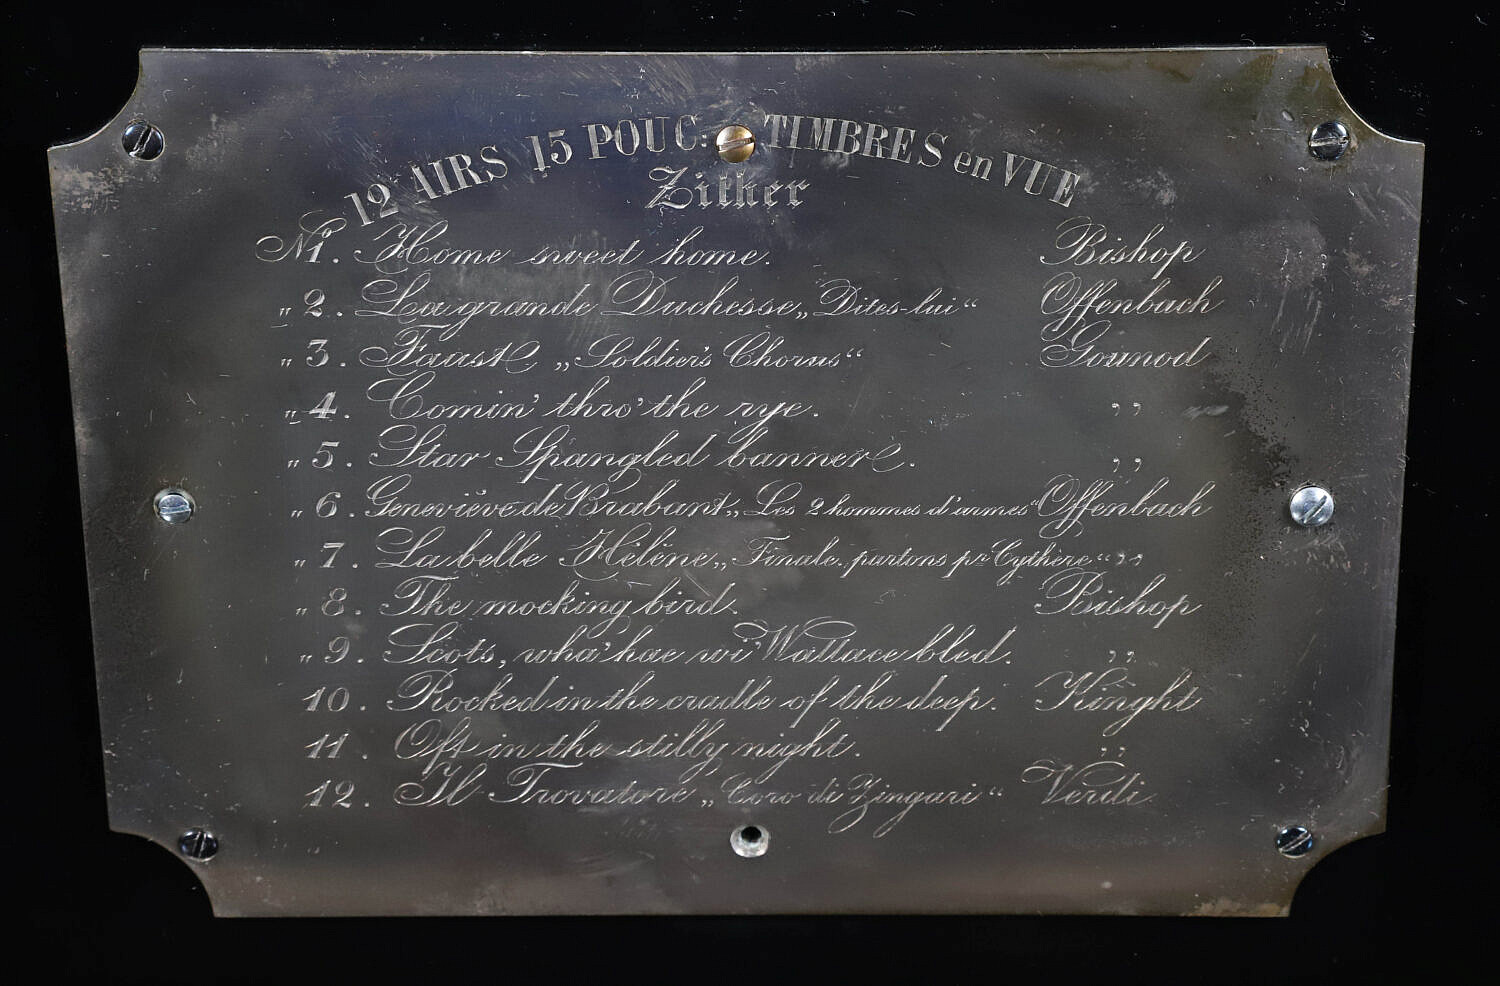 12 AIRS 15 POUC: TIMBRES en VUE
Zither
No 1. Home sweet home. Bishop
„ 2. La grande Duchesse „Dites-lui“ Offenbach
„ 3. Faust „Soldier's Chorus“ Gounod
„ 4. Comin' thro' the rye. ,,
„ 5. Star Spangled banner. ,,
„ 6. Geneviève de Brabant „Les 2 hommes d'armes“ Offenbach
„ 7. La belle Hélène „Finale, partons pr Cythère“ ,,
„ 8. The mocking bird. Bishop
„ 9. Scots, wha' hae wi' Wallace bled. ,,
10. Rocked in the cradle of the deep. Kinght
11. Oft in the stilly night. ,,
12. Il Trovatore „Coro di Zingari“ Verdi